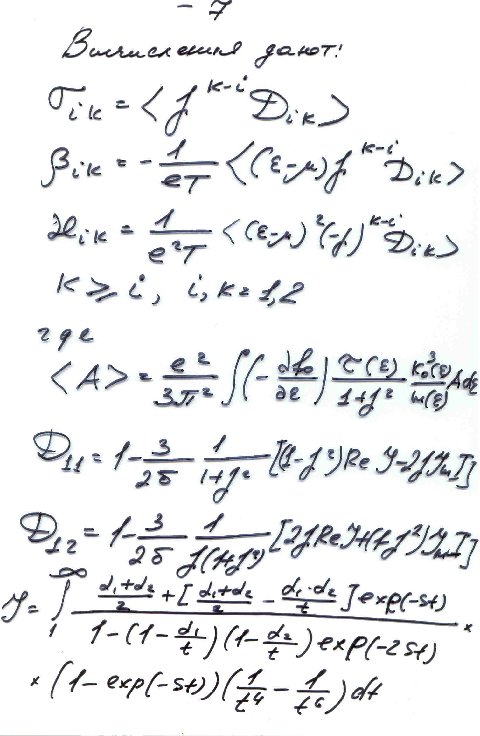 - 7
Вычисления дают:
σ_{ik} = < γ^{k-i} D_{ik} >
β_{ik} = - \frac{1}{eT} < (ε-μ) γ^{k-i} D_{ik} >
ϰ_{ik} = \frac{1}{e^2 T} < (ε-μ)^2 (-γ)^{k-i} D_{ik} >
k ⩾ i, i, k = 1,2
где
< A > = \frac{e^2}{3π^2} ∫ (-\frac{∂f_0}{∂ε}) \frac{τ(ε)}{1+γ^2} \frac{k_0^3(ε)}{m(ε)} A dε
D_{11} = 1 - \frac{3}{2δ} \frac{1}{1+γ^2} [(1-γ^2) Re J - 2γ Jm J]
D_{12} = 1 - \frac{3}{2δ} \frac{1}{γ(1+γ^2)} [2γ Re J + (1-γ^2) Jm J]
J = ∫_1^∞ \frac{\frac{α_1+α_2}{2} + [\frac{α_1+α_2}{2} - \frac{α_1·α_2}{t}] exp(-st)}{1-(1-\frac{α_1}{t})(1-\frac{α_2}{t}) exp(-2st)} ×
× (1 - exp(-st)) (\frac{1}{t^4} - \frac{1}{t^6}) dt